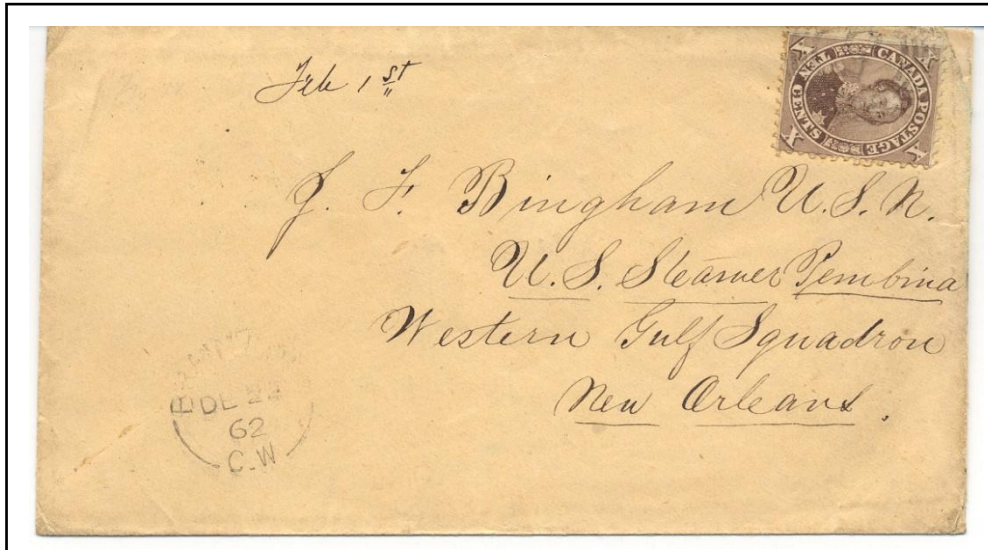 Feb 1st
CANADA POSTAGE
TEN CENTS
X X X X
J. F. Bingham U.S.N.
U.S. Steamer Pembina
Western Gulf Squadron
New Orleans.
DE
62
C.W